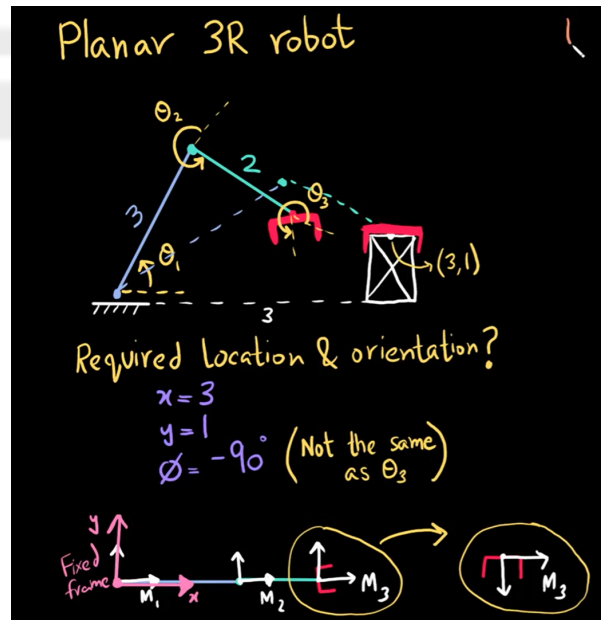 Planar 3R robot
θ₂
2
3
θ₃
θ₁
(3,1)
3
Required Location & orientation?
x=3
y=1
Ø=-90° (Not the same
as θ₃)
y
Fixed
frame
M₁
x
M₂
M₃
M₃